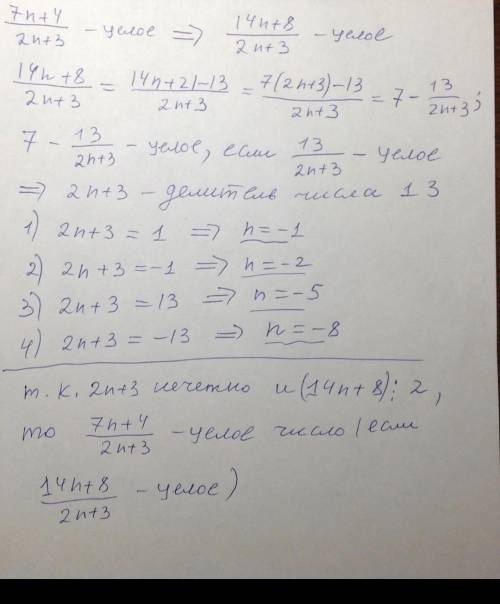 (7n+4)/(2n+3) - целое ⇒ (14n+8)/(2n+3) - целое
(14n+8)/(2n+3) = (14n+21-13)/(2n+3) = (7(2n+3)-13)/(2n+3) = 7 - 13/(2n+3);
7 - 13/(2n+3) - целое, если 13/(2n+3) - целое
⇒ 2n+3 - делитель числа 13
1) 2n+3 = 1 ⇒ n = -1
2) 2n+3 = -1 ⇒ n = -2
3) 2n+3 = 13 ⇒ n = -5
4) 2n+3 = -13 ⇒ n = -8
т. к. 2n+3 нечетно и (14n+8)⋮2,
то (7n+4)/(2n+3) - целое число (если
(14n+8)/(2n+3) - целое)